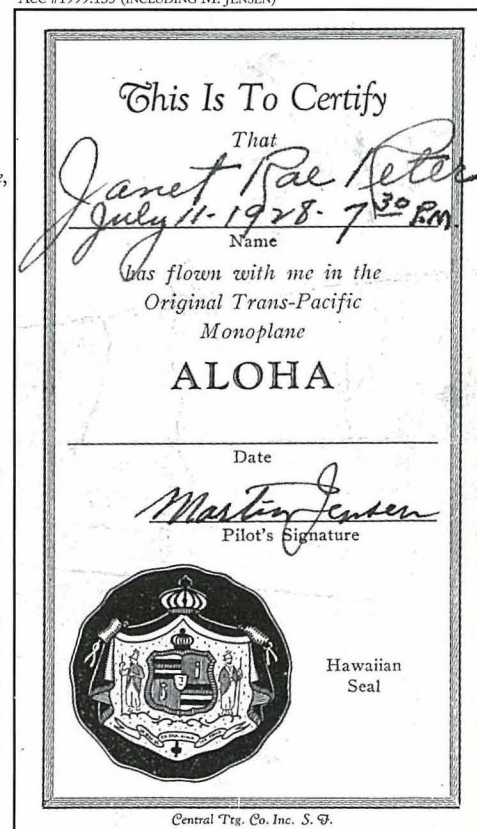 ACC #1999.133 (INCLUDING M. JENSEN)
This Is To Certify
That
Janet Rae Peter
July 11-1928-7 30 P.M.
Name
has flown with me in the
Original Trans-Pacific
Monoplane
ALOHA
Date
Martin Jensen
Pilot's Signature
Hawaiian
Seal
Central Ptg. Co. Inc. S. F.